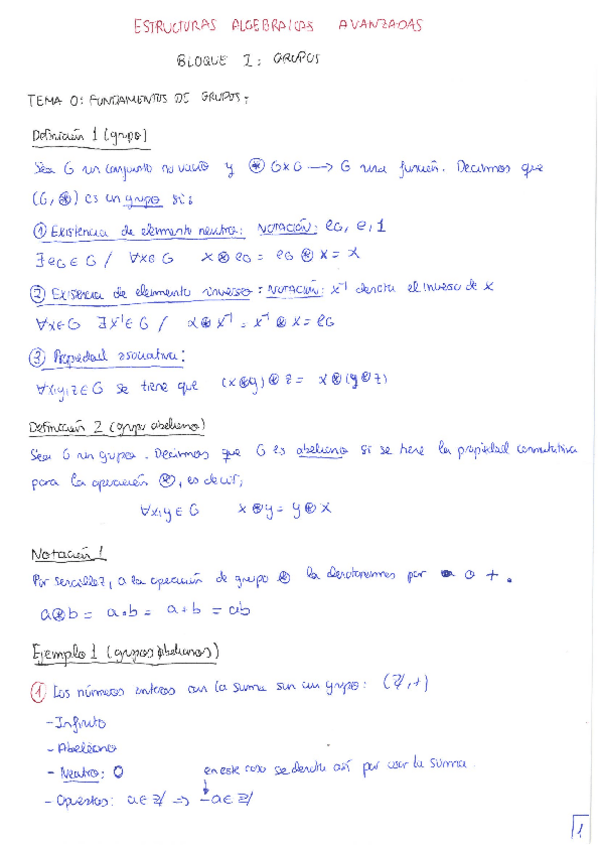 ESTRUCTURAS ALGEBRAICAS AVANZADAS
BLOQUE I: GRUPOS
TEMA 0: FUNDAMENTOS DE GRUPOS.
Definición 1 (grupo)
Sea G un conjunto no vacío y ⊛ G×G → G una función. Decimos que
(G, ⊛) es un grupo si:
① Existencia de elemento neutro: NOTACIÓN: eG, e, 1
∃ eG ∈ G / ∀x∈G x ⊛ eG = eG ⊛ x = x
② Existencia de elemento inverso: NOTACIÓN: x⁻¹ denota el inverso de x
∀x∈G ∃ x⁻¹∈G / x ⊛ x⁻¹ = x⁻¹ ⊛ x = eG
③ Propiedad asociativa:
∀x,y,z∈G se tiene que (x⊛y)⊛z = x⊛(y⊛z)
Definición 2 (grupo abeliano)
Sea G un grupo. Decimos que G es abeliano si se tiene la propiedad conmutativa
para la operación ⊛, es decir,
∀x,y∈G x⊛y = y⊛x
Notación 1
Por sencillez, a la operación de grupo ⊛ la denotaremos por o + .
a⊛b = a·b = a+b = ab
Ejemplo 1 (grupos abelianos)
① Los números enteros con la suma son un grupo: (ℤ,+)
- Infinito
- Abeliano
- Neutro: 0 en este caso se denota así por usar la suma.
- Opuestos: a∈ℤ ⇒ -a∈ℤ
1